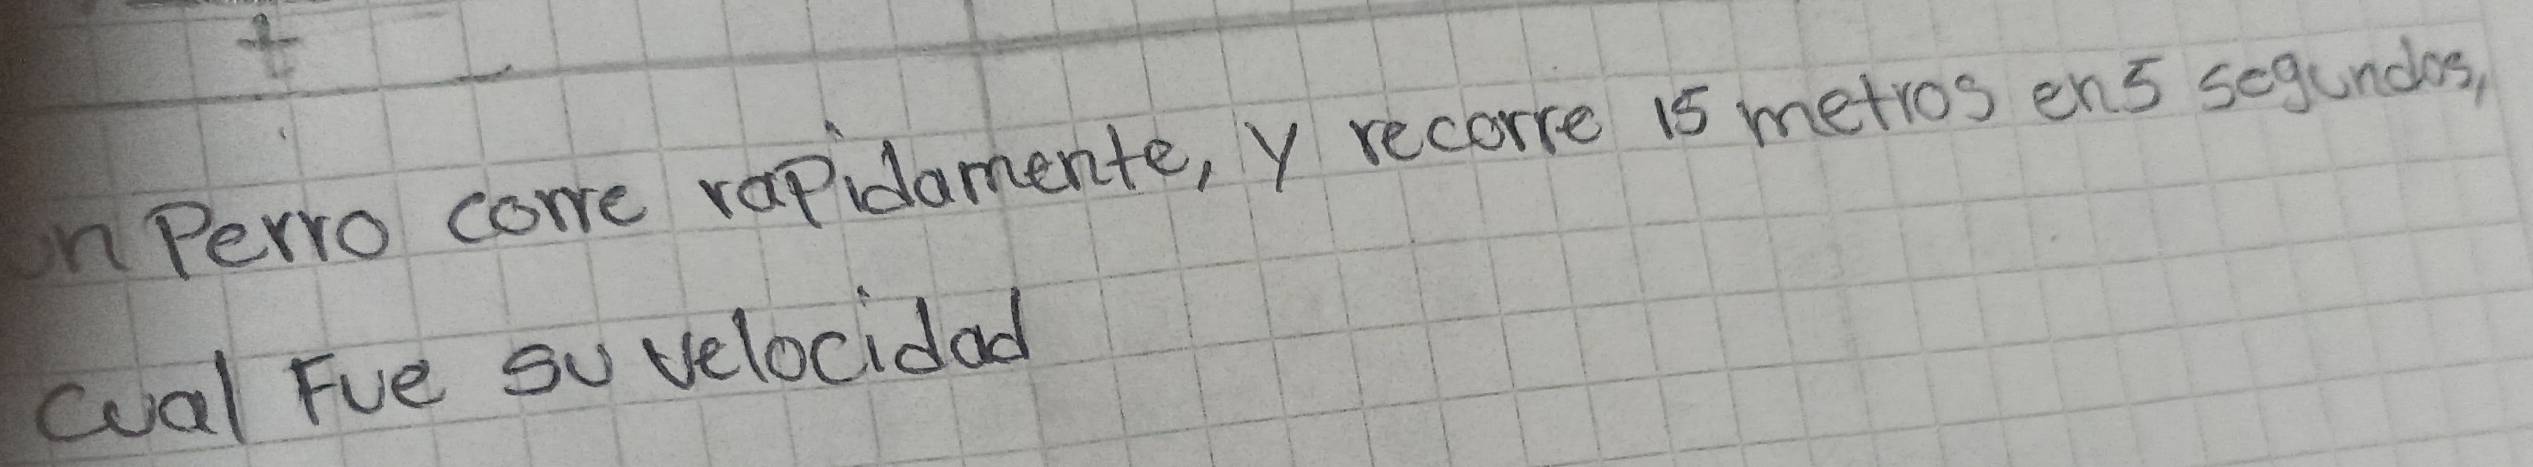 t
un Perro corre rapidamente, y recorre 15 metros en 5 segundos,
cual Fue su velocidad